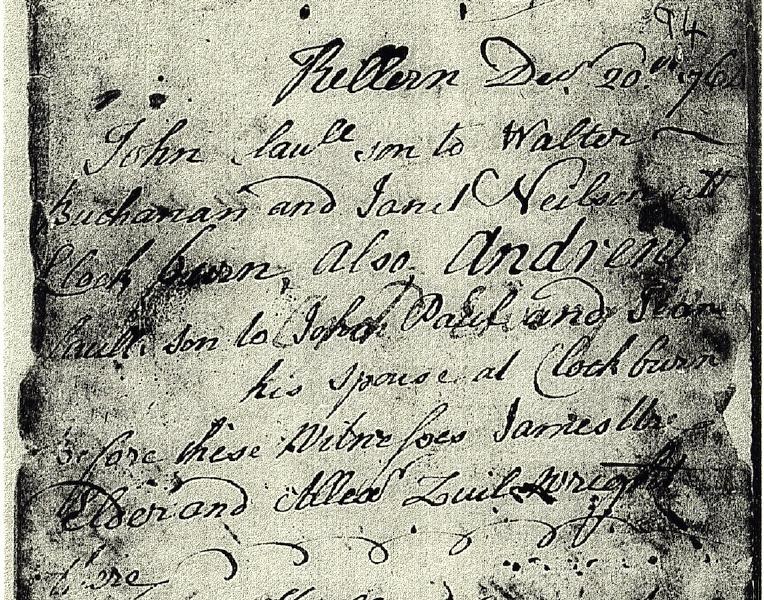 94
Killern Decr 20th 176
John laull son to Walter
Buchanan and Janet Neilson att
Clock burn, Also, Andrew
laull son to John Paul and Jean
his spouse at Clockburn
before these Witnesses James Ure
Elder and Allexr Zuil Wright
there